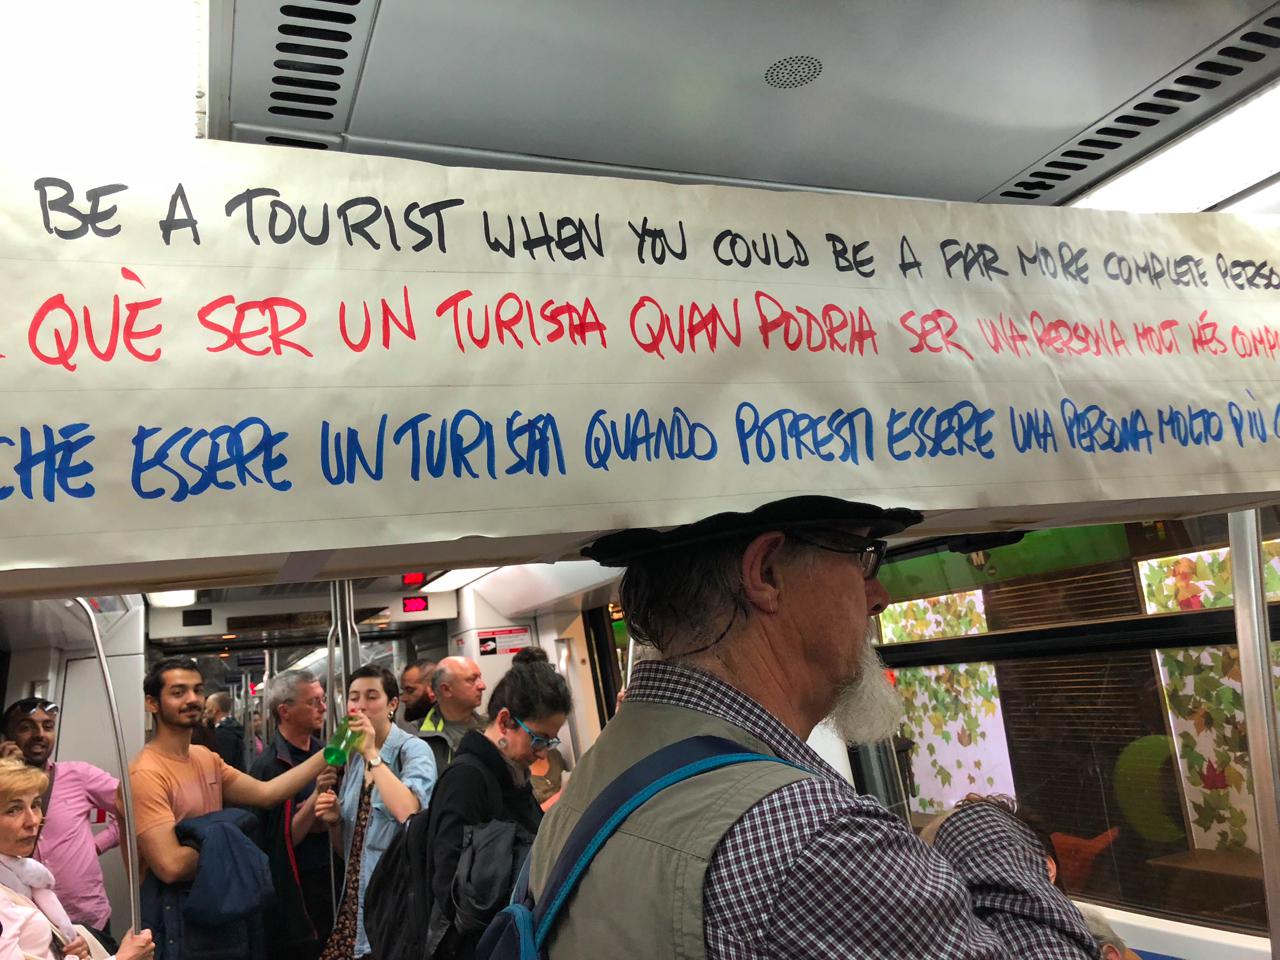 BE A TOURIST WHEN YOU COULD BE A FAR MORE COMPLETE PERSO
QUÈ SER UN TURISTA QUAN PODRIA SER UNA PERSONA MOLT MÉS COMP
CHE ESSERE UN TURISTA QUANDO POTRESTI ESSERE UNA PERSONA MOLTO PIÙ